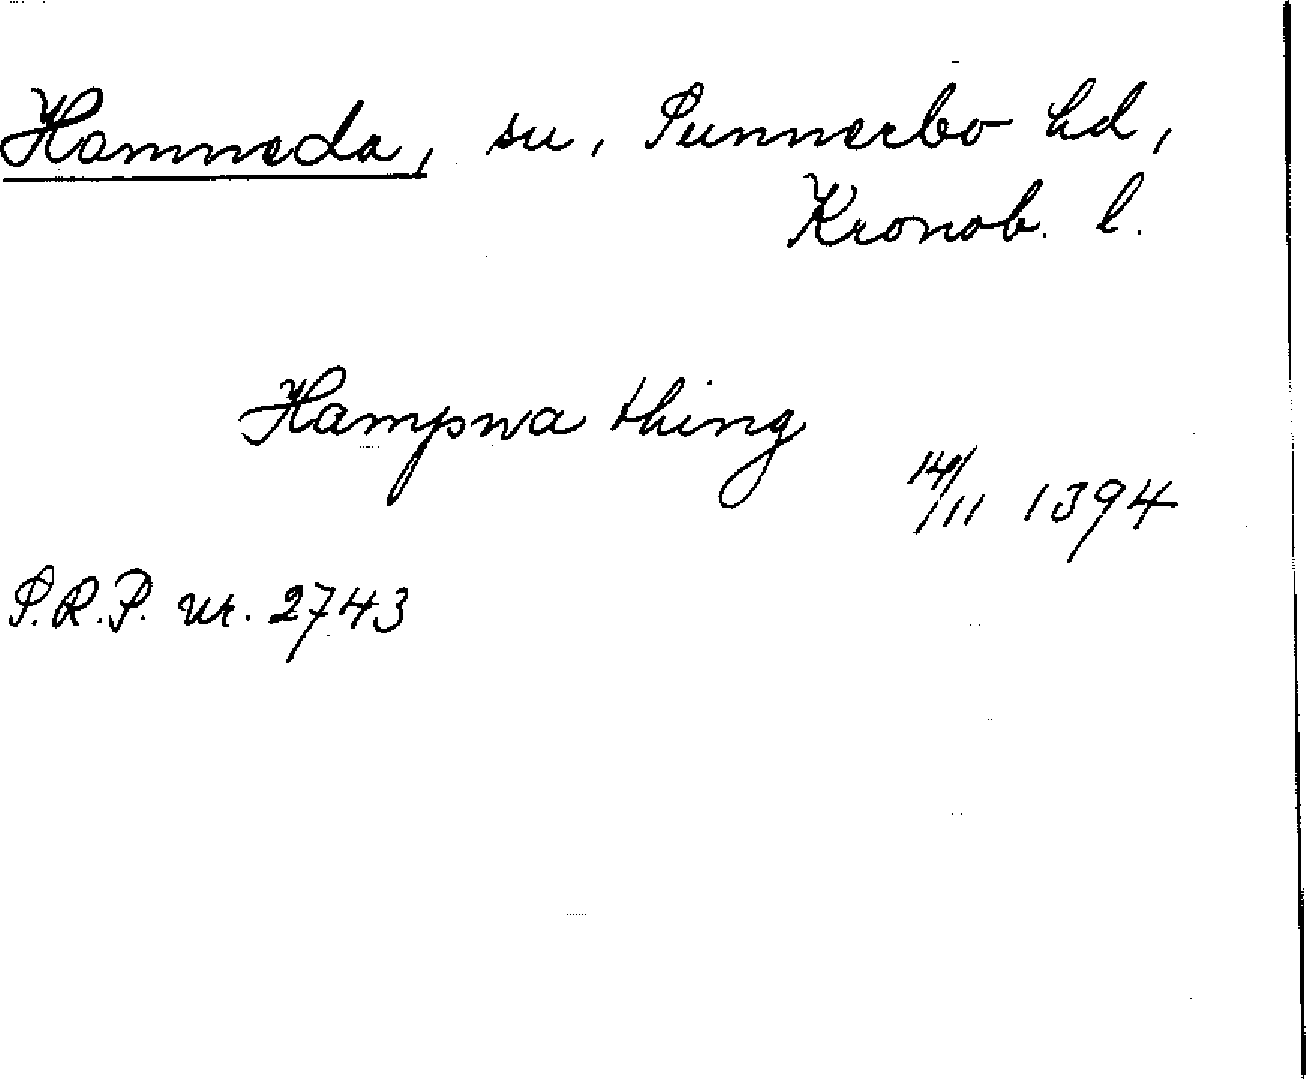 Hamneda, sn, Sunnerbo hd,
Kronob. l.
Hampna thing
14/11 1394
S.R.P. nr. 2743